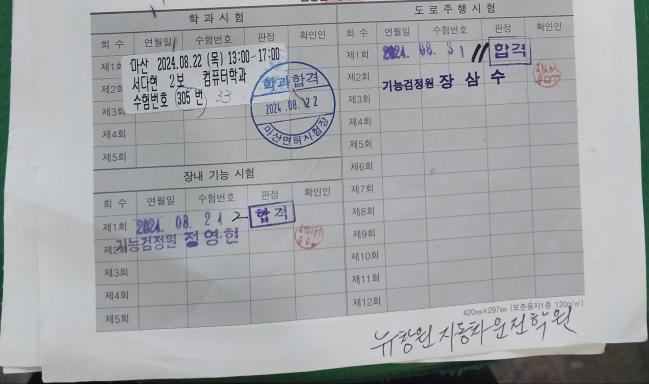 학 과 시 험
회 수 연월일 수험번호 판정 확인인
제1회
마산 2024.08.22 (목) 13:00-17:00
제2회
서다현 2보 컴퓨터학과
수험번호 305 번 33
제3회
제4회
제5회
학과합격
2024.08.22
마산면허시험장
장내 기능 시험
회 수 연월일 수험번호 판정 확인인
제1회 2024. 08. 21 2 합격
제2회 기능검정원 정영현
제3회
제4회
제5회
도 로 주 행 시 험
회 수 연월일 수험번호 판정 확인인
제1회 2024. 08. 31 11 합격
제2회 기능검정원 장 삼 수
제3회
제4회
제5회
제6회
제7회
제8회
제9회
제10회
제11회
제12회
420㎜×297㎜ (보존용지1종 120g/㎡)
뉴창원자동차운전학원